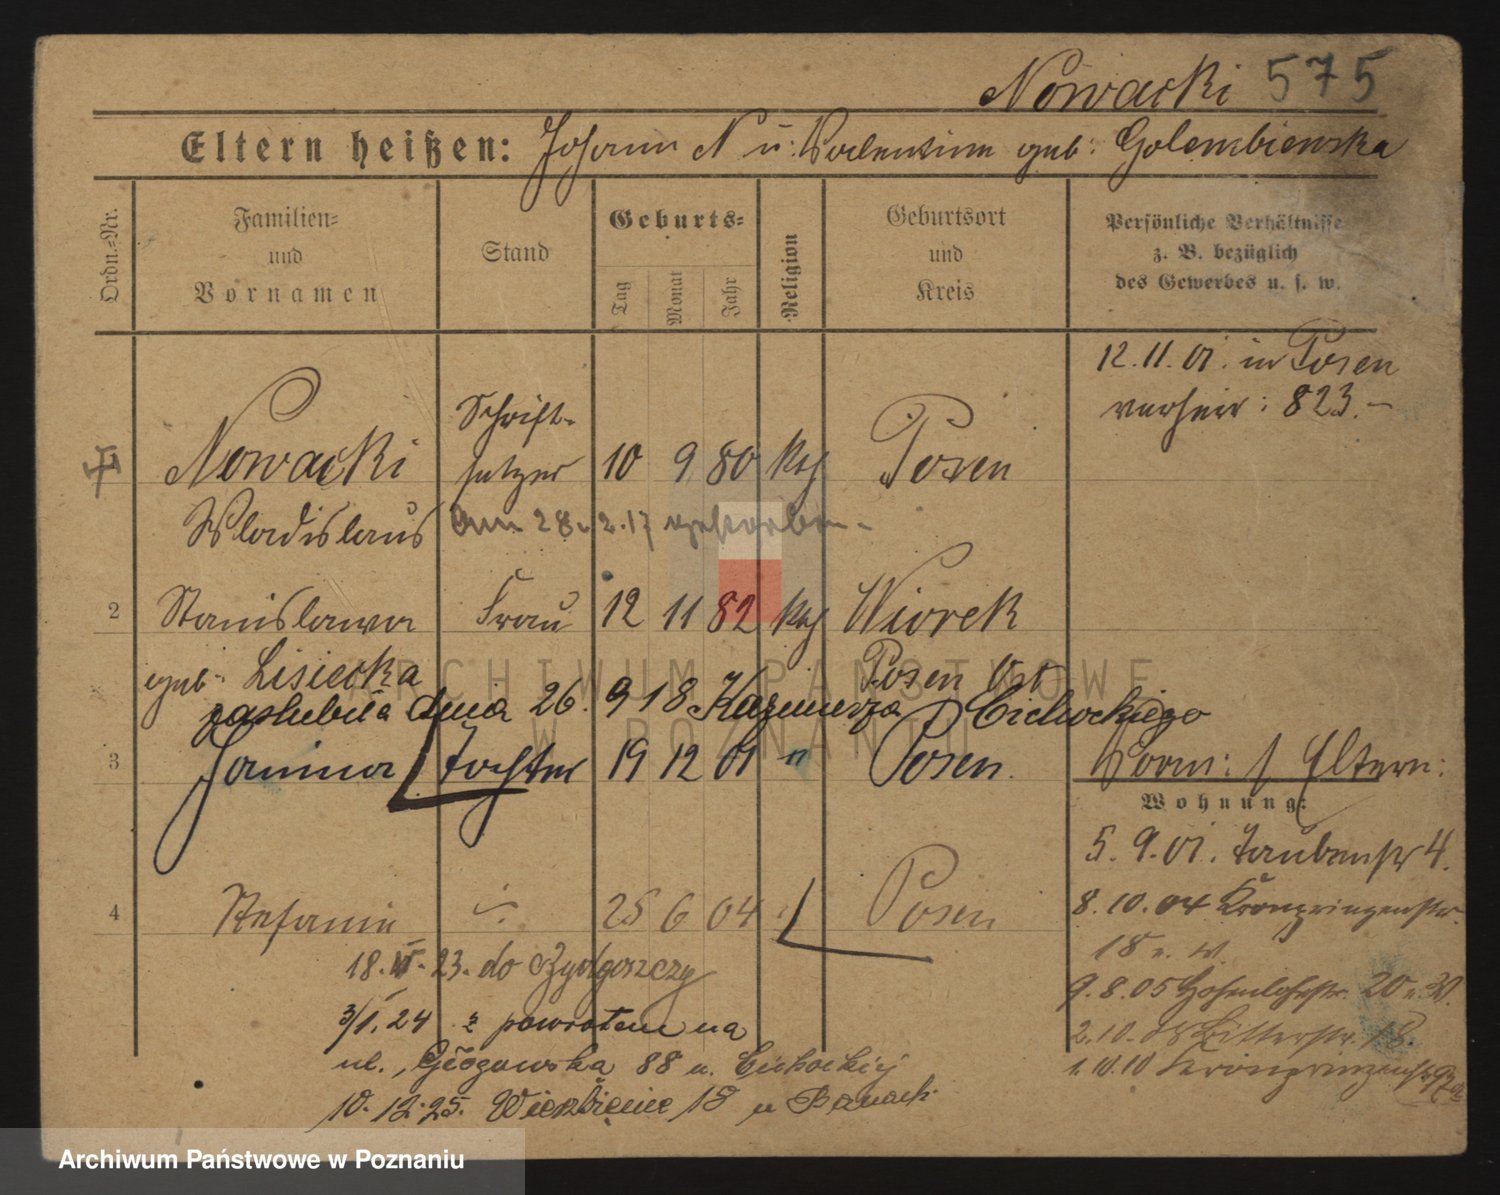 Nowacki 575
Eltern heißen: Johann N u. Valentine geb: Golembiewska
Ordn.=Nr.
Familien=
und
Vornamen
Stand
Geburts=
Tag
Monat
Jahr
Religion
Geburtsort
und
Kreis
Persönliche Verhältnisse
z. B. bezüglich
des Gewerbes u. s. w.
12.11.01. in Posen
verheir: 823.-
Nowacki Schrift-
setzer 10 9 80 kth Posen
Wladislaus am 28.2.17 gestorben.
2 Stanislawa Frau 12 11 82 kth Wiorek
geb. Lisiecka Posen Ost
zaślubiła dnia 26. 9 18 Kazimierza Cichockiego
3 Janina Tochter 19 12 01 " Posen. Vorm: s/ Eltern:
Wohnung:
5. 9. 01. Taubenstr 4.
4 Stefanie 25 6 04 Posen
8. 10. 04 Kronprinzenstr.
18
18. 23. do Bydgoszczy
9. 8. 05 Hohenlohestr. 20
3/I. 24 z powrotem na
2.10. Ritterstr. 18.
ul. Głogowska 88 u. Cichockiej
1.10.10 Kronprinzenstr
10. 12. 25. Wierzbięcice 18 u
ARCHIWUM PAŃSTWOWE
W POZNANIU
Archiwum Państwowe w Poznaniu